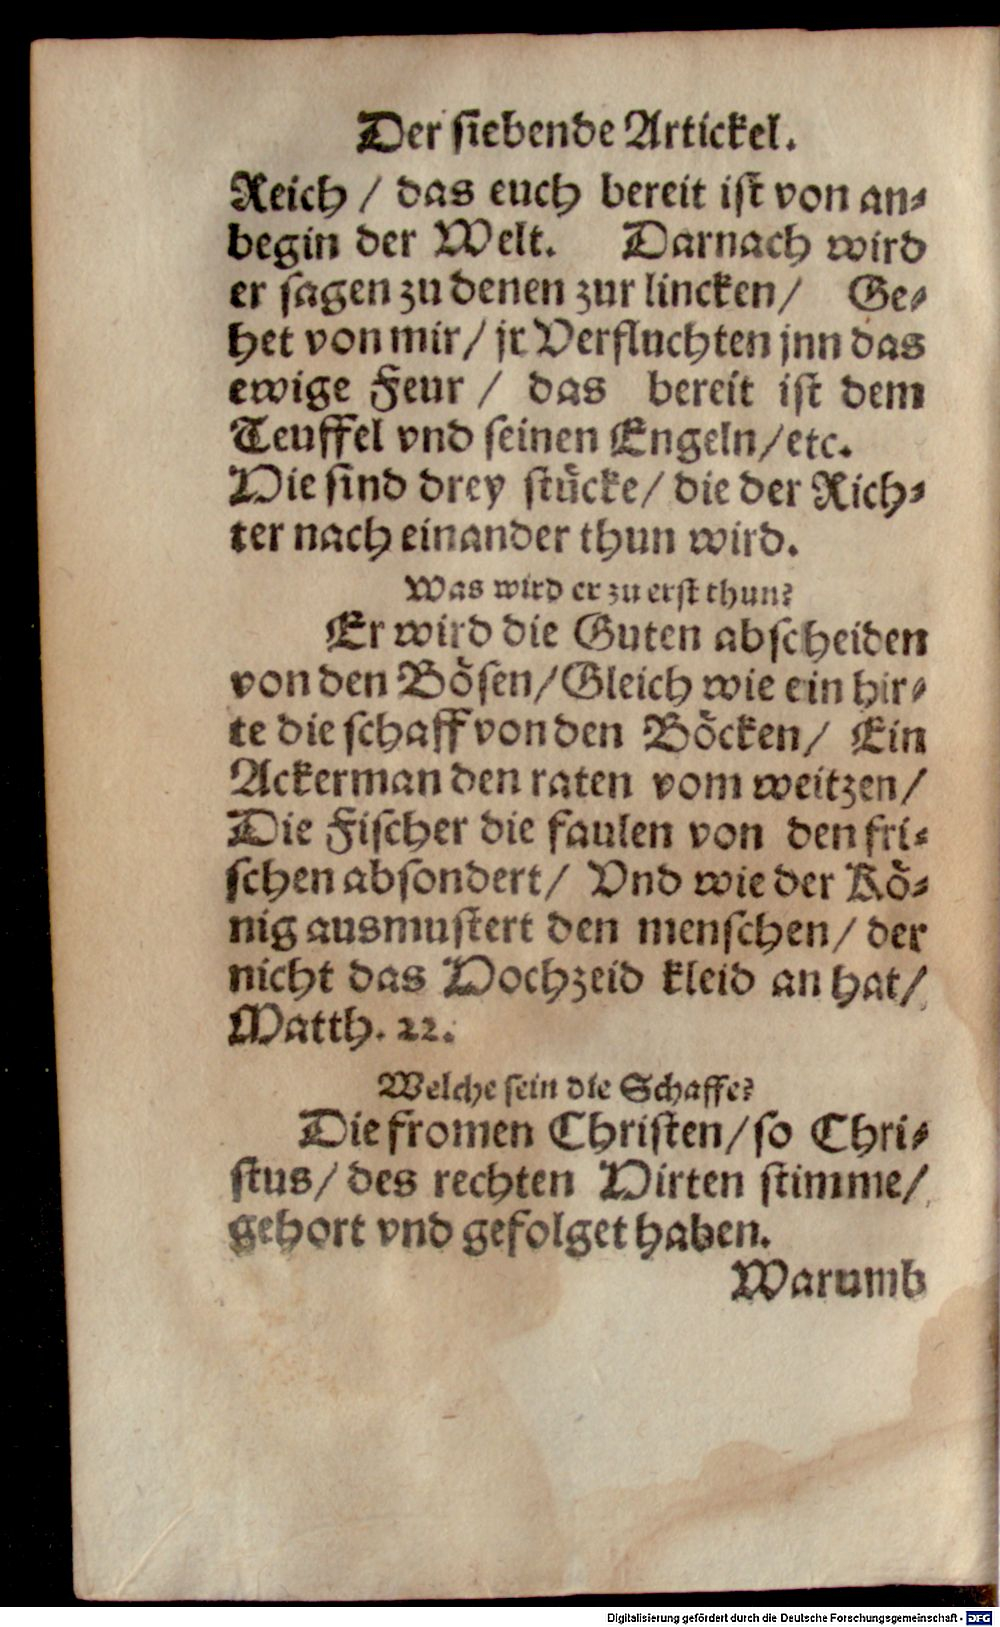 Der siebende Artickel.
Reich / das euch bereit ist von an-
begin der Welt. Darnach wird
er sagen zu denen zur lincken/ Ge-
het von mir/ jr Verfluchten jnn das
ewige Feur / das bereit ist dem
Teuffel vnd seinen Engeln/etc.
Die sind drey stücke/ die der Rich-
ter nach einander thun wird.
Was wird er zu erst thun?
Er wird die Guten abscheiden
von den Bösen/Gleich wie ein hir-
te die schaff von den Böcken/ Ein
Ackerman den raten vom weitzen/
Die Fischer die faulen von den fri-
schen absondert/ Vnd wie der Kö-
nig ausmustert den menschen/ der
nicht das Hochzeid kleid an hat/
Matth. 22.
Welche sein die Schaffe?
Die fromen Christen/so Chri-
stus/ des rechten Hirten stimme/
gehort vnd gefolget haben.
Warumb
Digitalisierung gefördert durch die Deutsche Forschungsgemeinschaft - DFG